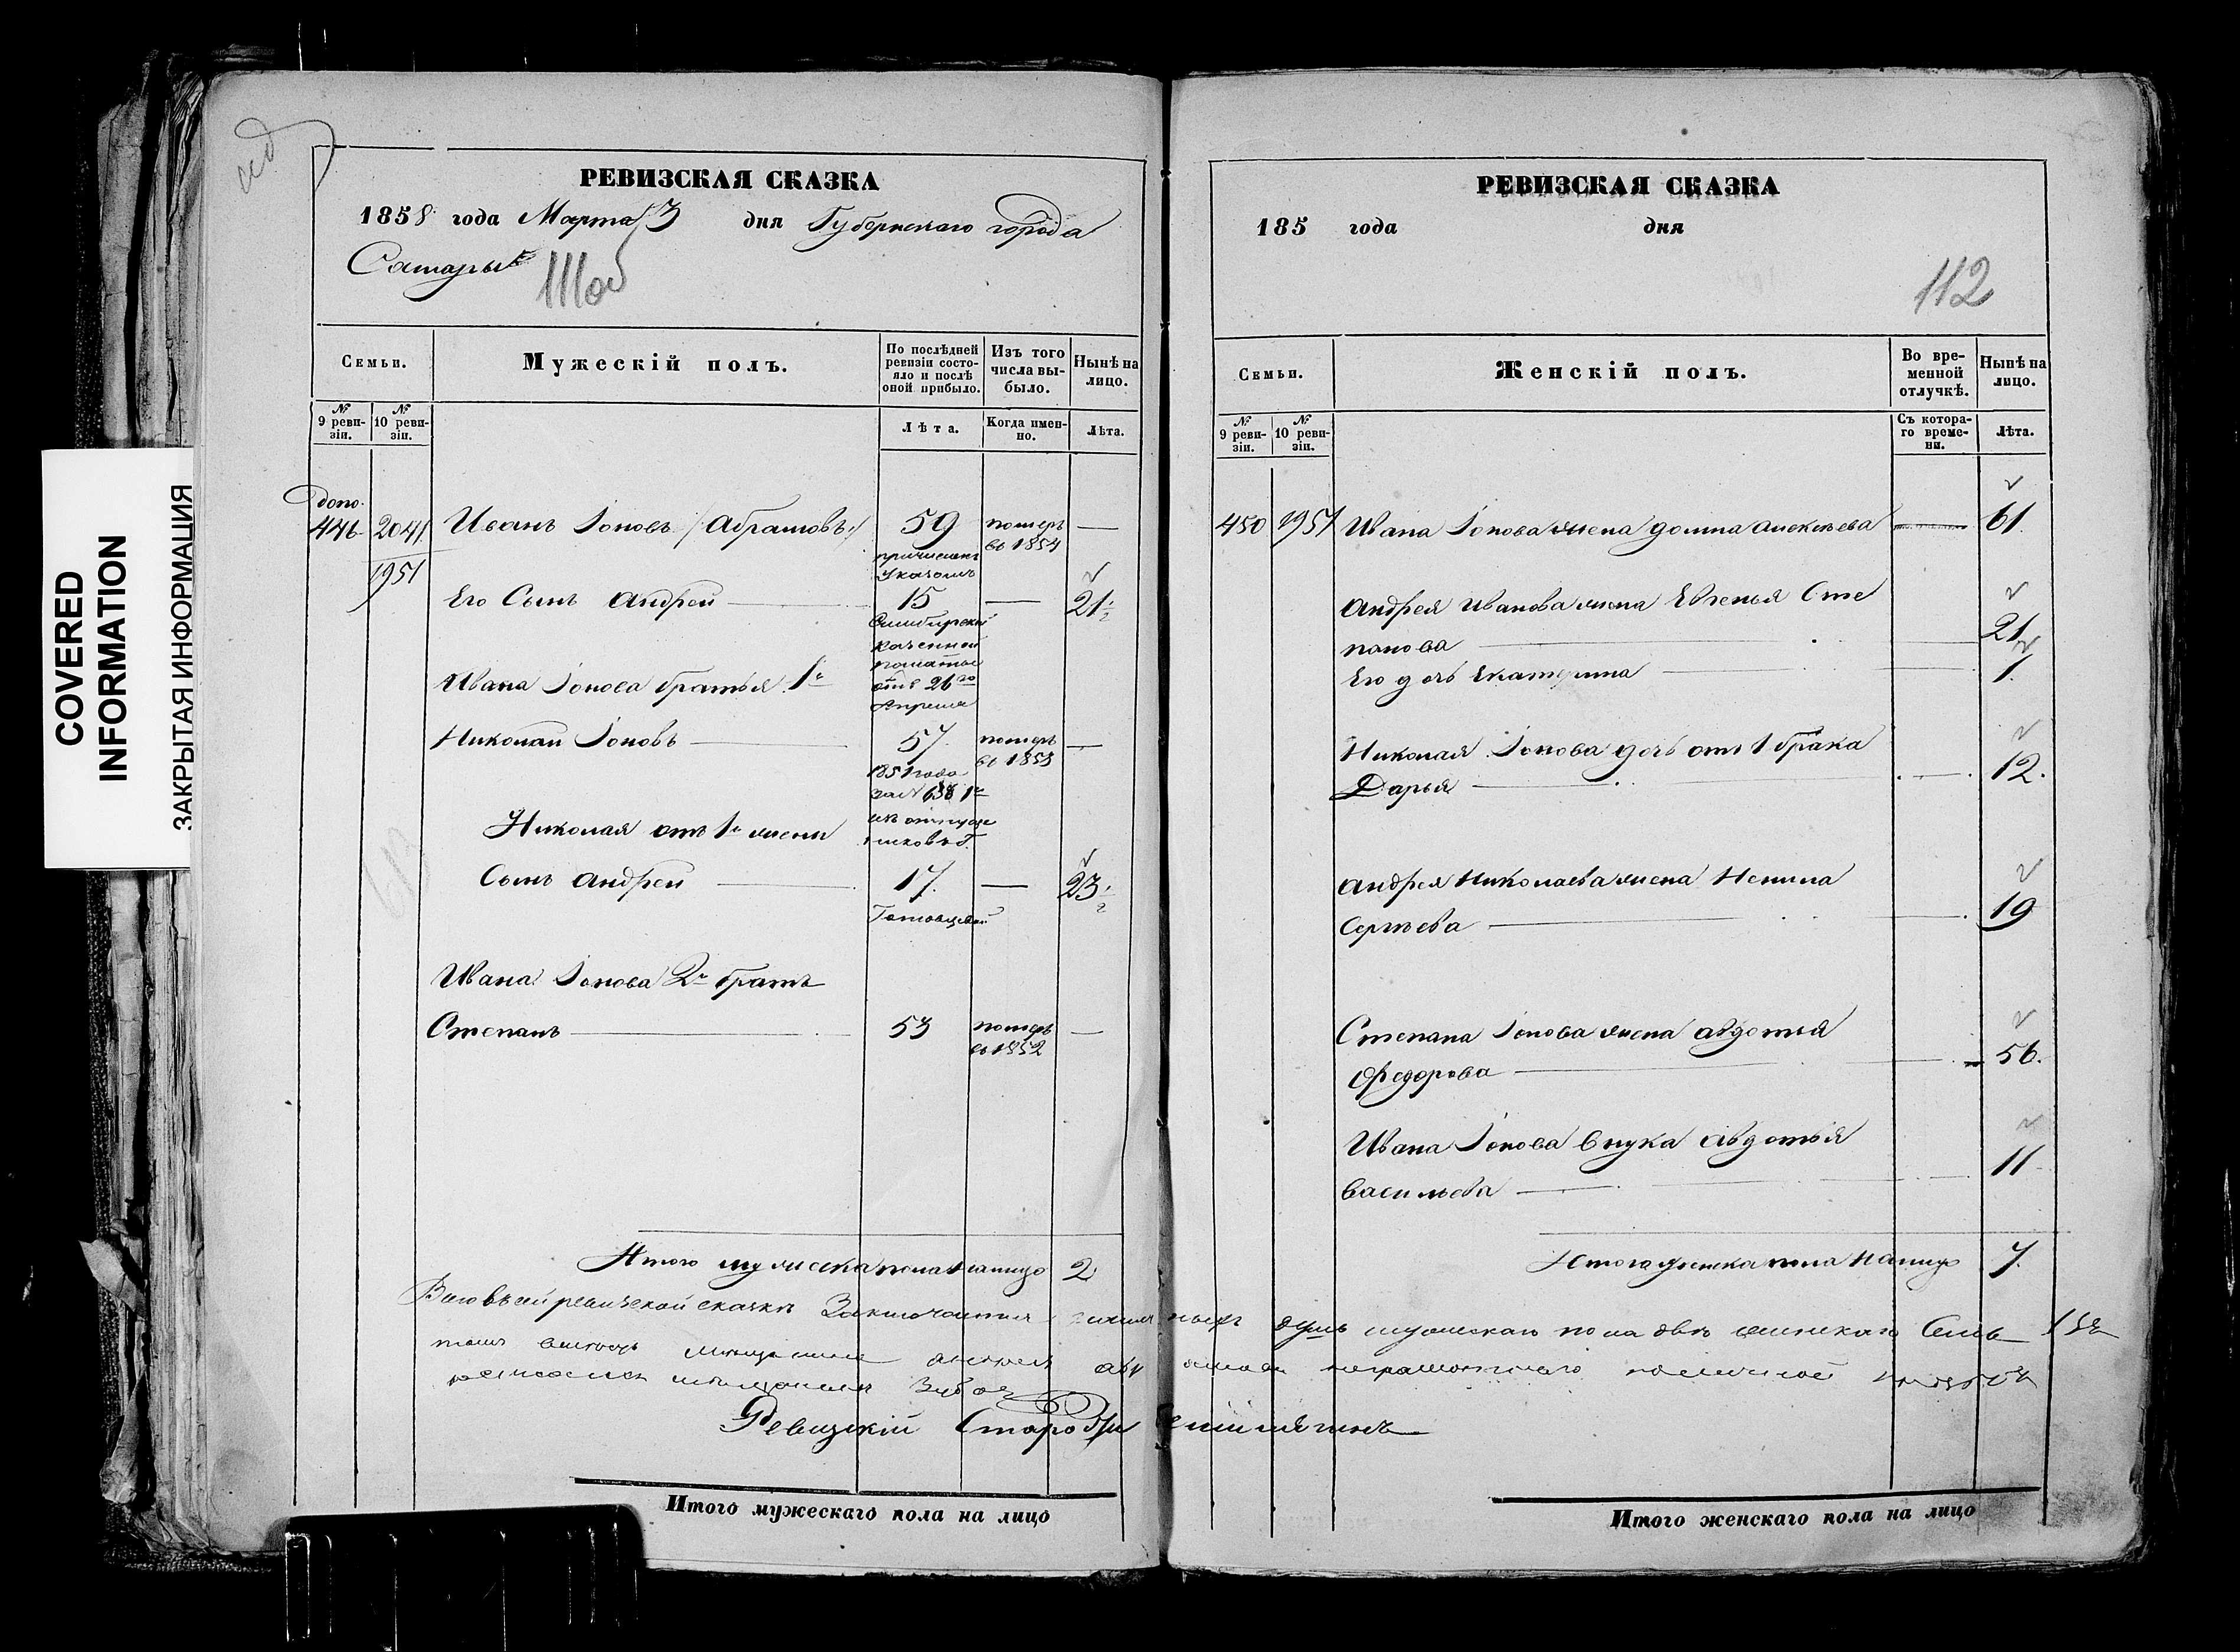 COVERED
INFORMATION
ЗАКРЫТАЯ ИНФОРМАЦИЯ
РЕВИЗСКАЯ СКАЗКА
1858 года Марта 3 дня Губернскаго города
Самары
111об
Семьи.
Мужескій полъ.
По послѣдней ревизіи состояло и послѣ оной прибыло.
Изъ того числа выбыло.
Нынѣ на лицо.
№ 9 ревизіи.
№ 10 ревизіи.
Лѣта.
Когда именно.
Лѣта.
допо.
446 2041 Иванъ Іоновъ /Абрамовъ/ 59 померъ —
въ 1854
причислен
Указомъ
1951
Его Сынъ Андрей — 15 — 21 1/2
Симбирской
казенной
палаты
Ивана Іонова братья 1й
отъ 26го
Апреля
Николай Іоновъ — 57 померъ —
въ 1853
1851 года
за №
Николая отъ 1й жены
Сынъ Андрей — 17. — 23 1/2
Ивана Іонова 2й братъ
Степанъ — 53 померъ —
въ 1852
Итого мужеска пола на лицо 2
ревизской сказкѣ Заключается
Ревизскій
Итого мужескаго пола на лицо
РЕВИЗСКАЯ СКАЗКА
185 года дня
112
Семьи.
Женскій полъ.
Во временной отлучкѣ.
Нынѣ на лицо.
№ 9 ревизіи.
№ 10 ревизіи.
Съ котораго времени.
Лѣта.
450 1951 Ивана Іонова жена Домна Алексѣева — 61
Андрея Иванова жена Евгенья Сте
панова — 21
Его дочь Екатерина — 1.
Николая Іонова дочь отъ 1 брака
Дарья — 12.
Андрея Николаева жена Ненила
Сергѣева — 19
Степана Іонова жена Авдотья
Федорова — 56.
Ивана Іонова внука Авдотья
Васильева — 11
Итого женска пола на лицо 7.
душъ мужескаго пола двѣ женскаго Семь
Итого женскаго пола на лицо